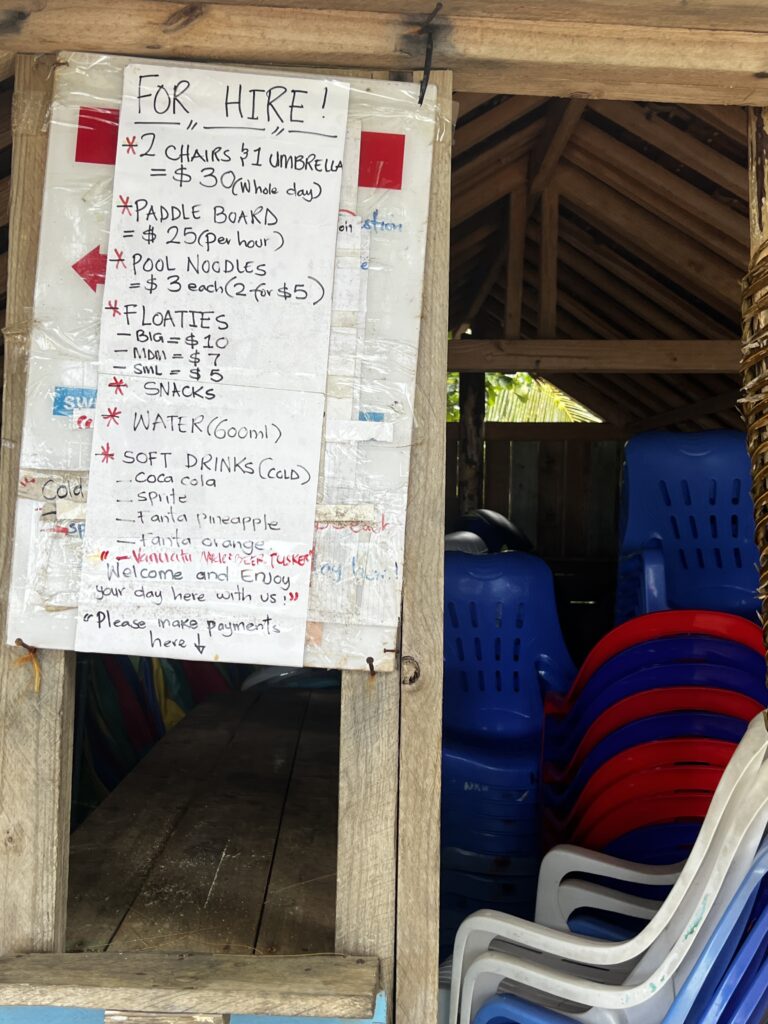 FOR HIRE!
* 2 CHAIRS & 1 UMBRELLA
= $30 (Whole day)
* PADDLE BOARD
= $25 (Per hour)
* POOL NOODLES
= $3 each (2 for $5)
* FLOATIES
- BIG = $10
- MDM = $7
- SML = $5
* SNACKS
* WATER (600ml)
* SOFT DRINKS (COLD)
- Coca cola
- Sprite
- Fanta pineapple
- Fanta orange
- Vanuatu TUSKER
Welcome and Enjoy
your day here with us!"
"Please make payments
here ↓
stion
SW
Cold
each